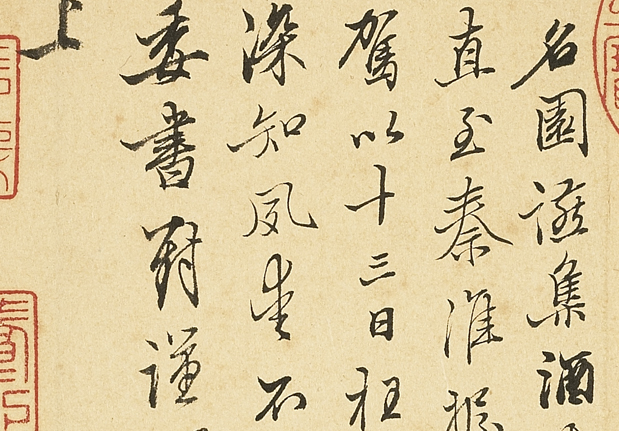 名園讌集酒
直至秦淮
駕以十三日枉
深知夙愛不
委書對謹
上